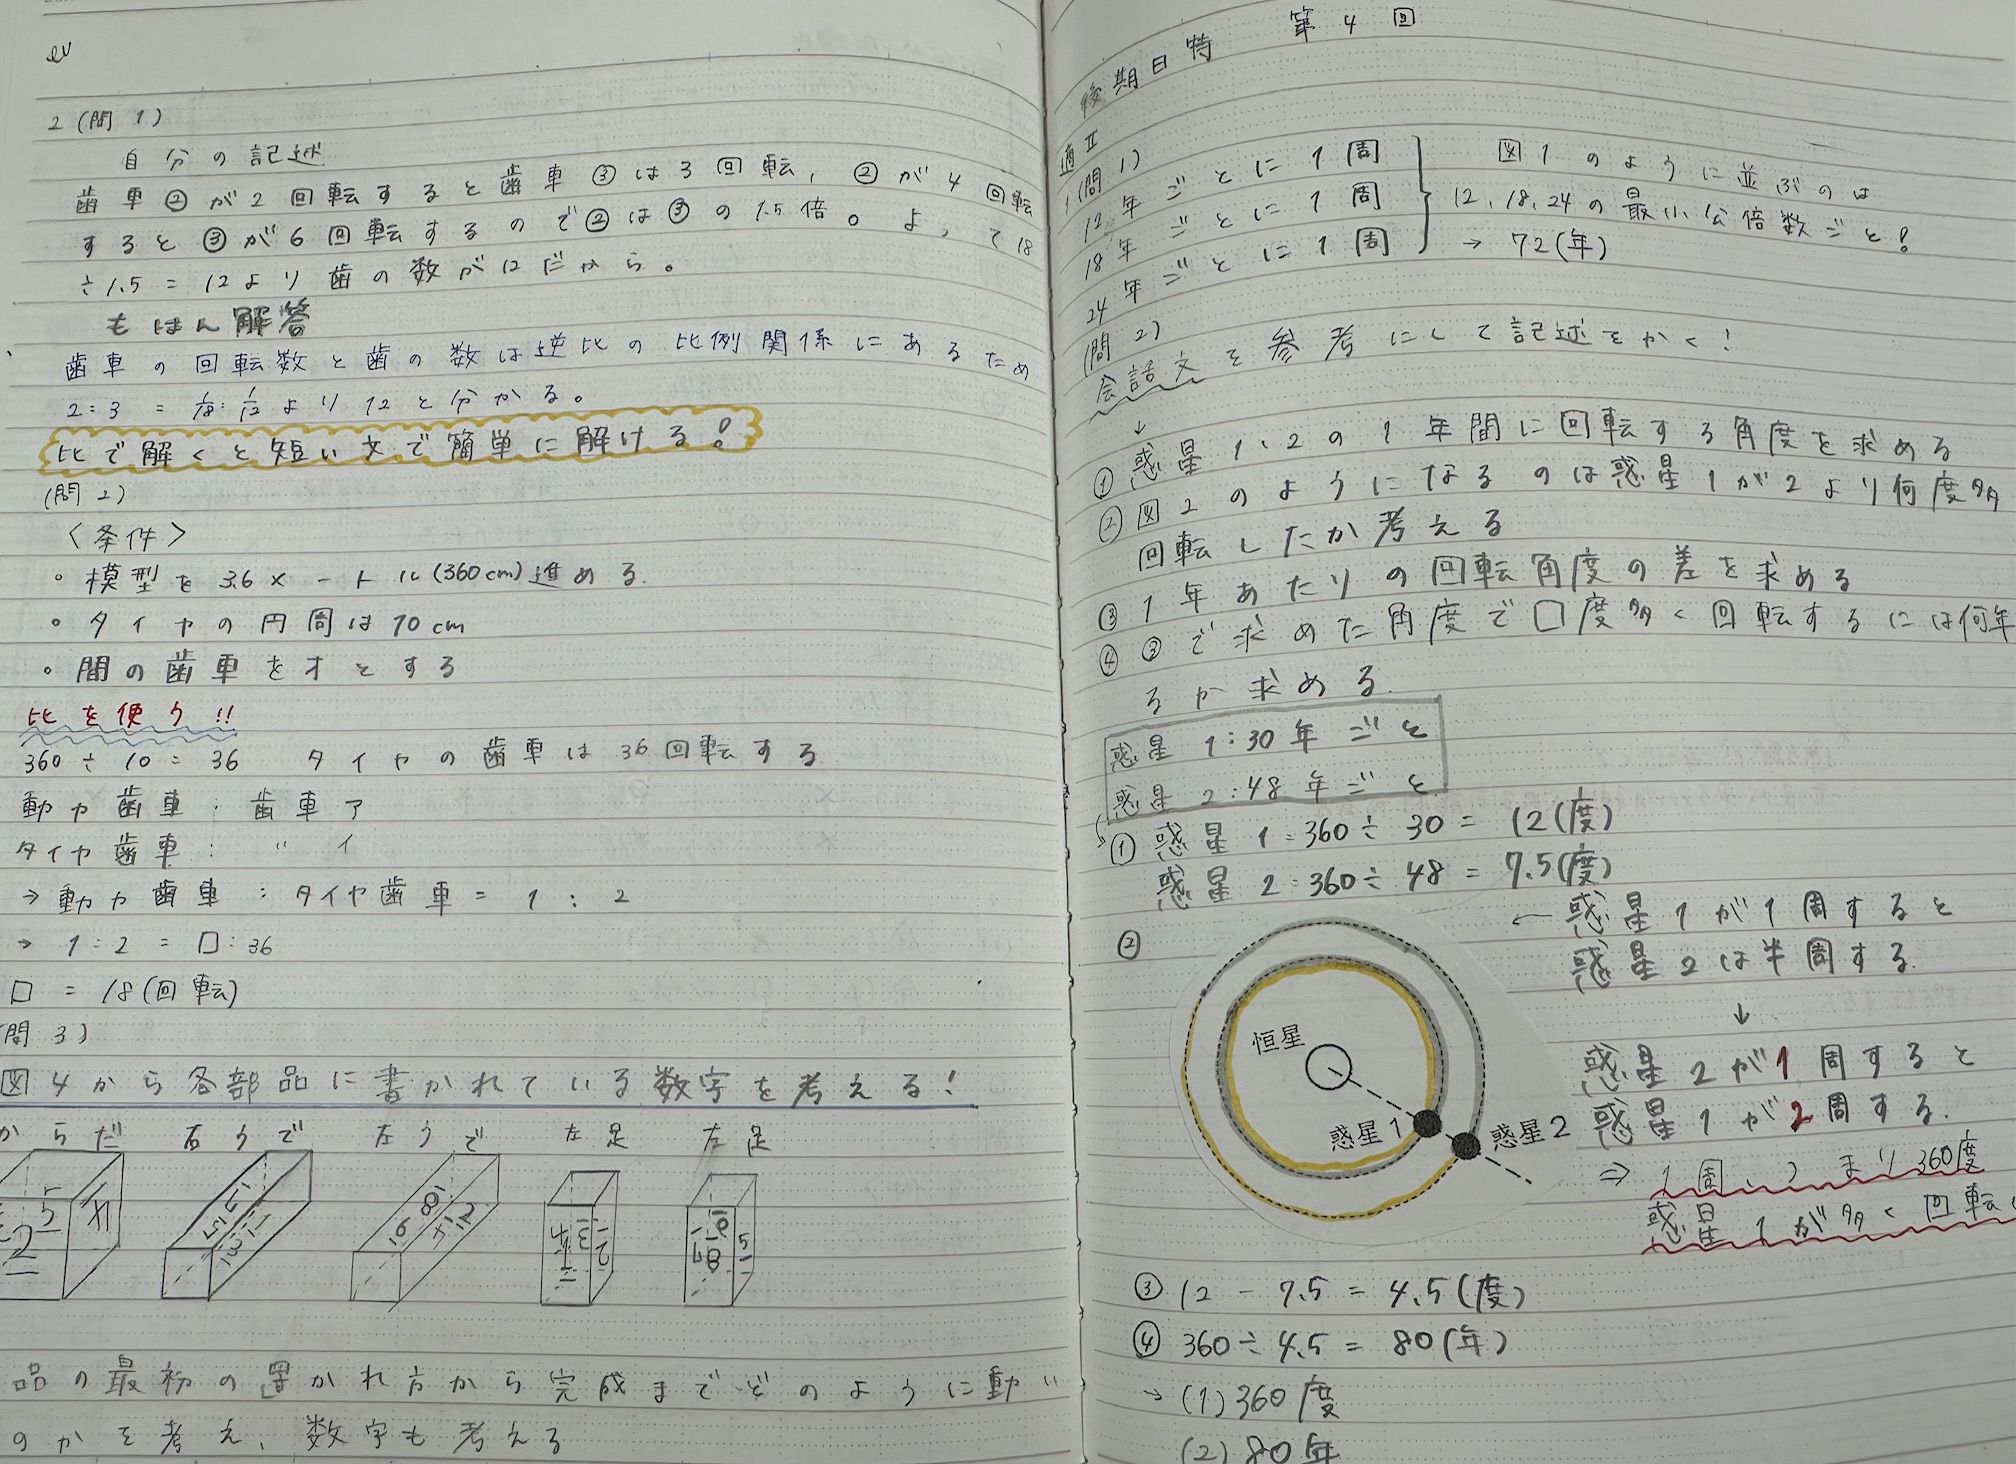 2(問1)
自分の記述
歯車②が2回転すると歯車③は3回転,②が4回転
すると③が6回転するので②は③の1.5倍。よって18
÷1.5=12より歯の数が12だから。
もはん解答
歯車の回転数と歯の数は逆比の比例関係にあるため
2:3=1/18:1/12より12と分かる。
比で解くと短い文で簡単に解ける!
(問2)
<条件>
・模型を3.6メートル(360cm)進める.
・タイヤの円周は10cm
・間の歯車をオとする
比を使う!!
360÷10=36 タイヤの歯車は36回転する
動力歯車:歯車ア
タイヤ歯車:〃イ
→動力歯車:タイヤ歯車=1:2
→1:2=□:36
□=18(回転)
(問3)
図4から各部品に書かれている数字を考える!
からだ 右うで 左うで 左足 左足
品の最初の置かれ方から完成までどのように動い
のかを考え、数字も考える
後期日特 第4回
適Ⅱ
1(問1)
12年ごとに1周
18年ごとに1周
24年ごとに1周
図1のように並ぶのは
12,18,24の最小公倍数ごと!
→72(年)
(問2)
会話文を参考にして記述をかく!
↓
①惑星1,2の1年間に回転する角度を求める
②図2のようになるのは惑星1が2より何度多
回転したか考える
③1年あたりの回転角度の差を求める
④③で求めた角度で□度多く回転するには何年
るか求める.
惑星1:30年ごと
惑星2:48年ごと
①惑星1:360÷30=12(度)
惑星2:360÷48=7.5(度)
②
←惑星1が1周すると
惑星2は半周する.
↓
惑星2が1周すると
惑星1が2周する.
⇒1周、つまり360度
惑星1が多く回転
恒星
惑星1
惑星2
③12-7.5=4.5(度)
④360÷4.5=80(年)
→(1)360度
(2)80年